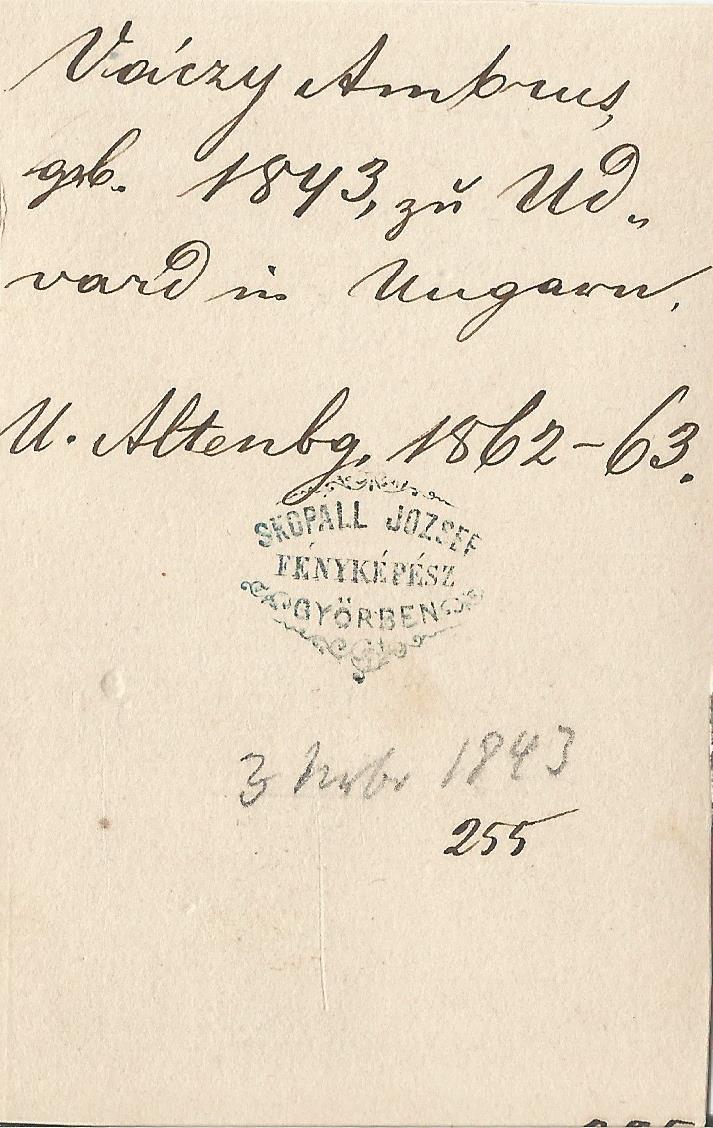 Váczy Ambrus,
geb. 1843, zu Ud„
vard in Ungarn.
U. Altenbg. 1862–63.
SKOPALL JOZSEF
FÉNYKÉPÉSZ
GYÖRBEN
3 Novbr 1843
255